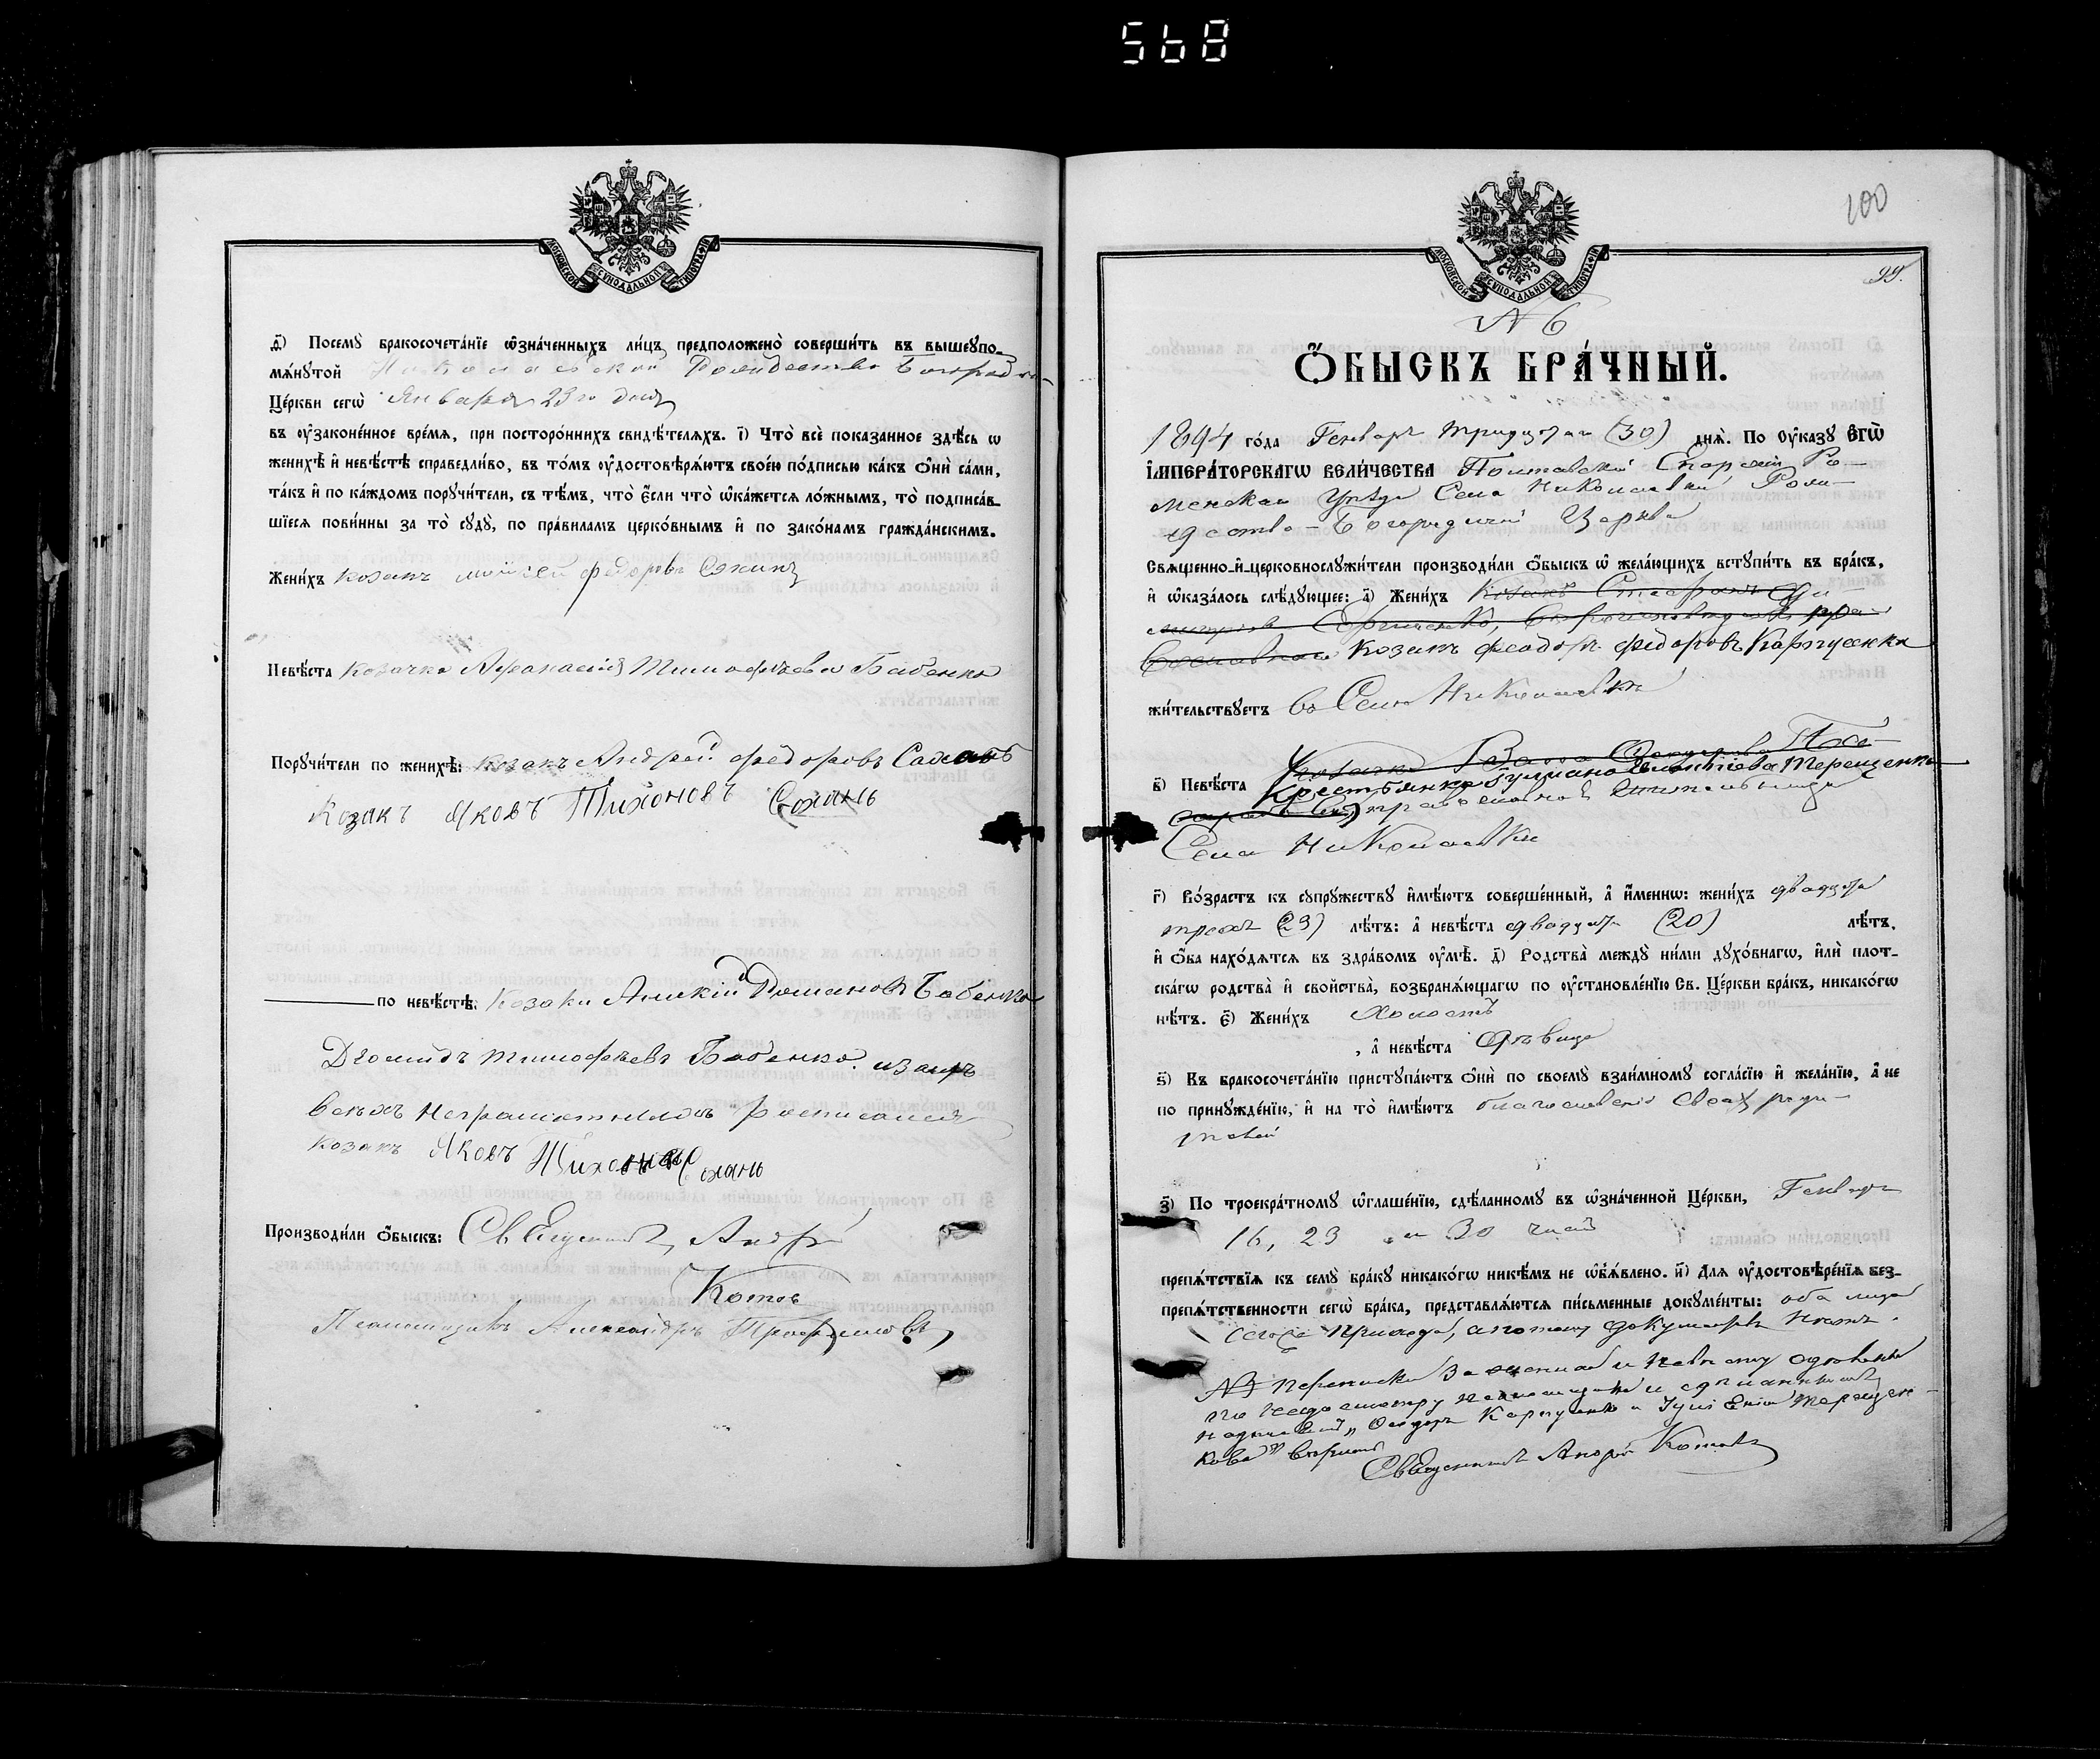 568
МОСКОВСКОЙ СѴНОДАЛЬНОЙ ТИПОГРАФІИ
ѳ҃) Посемꙋ̀ бракосочета́нїе ѡ҆зна́ченныхъ ли́цъ предположено̀ соверши́ть въ вышеꙋпо-
мѧ́нꙋтой Николаевской Рождество Богородич-
Це́ркви сегѡ̀ Января 23го дня
въ ᲂу҆зако́ненное вре́мѧ, при посторо́ннихъ свидѣ́телѧхъ. і҃) Что̀ всѐ показанное здѣ́сь ѡ
женихѣ̀ и҆ невѣ́стѣ справедли́во, въ то́мъ ᲂу҆достовѣрѧ́ютъ свое́ю по́дписью ка́къ ѻ҆нѝ са́ми,
та́къ и҆ по ка́ждомъ порꙋчи́тели, съ тѣ́мъ, что̀ є҆́сли что̀ ѡ҆ка́жетсѧ ло́жнымъ, то̀ подписа́в-
шїесѧ пови́нны за то̀ сꙋдꙋ̀, по пра́виламъ церко́внымъ и҆ по зако́намъ гражда́нскимъ.
Жени́хъ козакъ Моѵсей Федоровъ
Невѣ́ста Козачка Афанасія Тимофѣева Бабенко
Порꙋчи́тели по женихѣ̀: Козакъ Андрей Федоровъ
Козакъ Яковъ Тихоновъ Сохань
по невѣ́стѣ: Козаки Романовъ Бабенко
Діомидъ Тимофѣевъ Бабенко. и за
всѣхъ неграмотныхъ росписался
козакъ Яковъ Тихоновъ Сохань
Производи́ли ѻ҆́быскъ: Священникъ Андрей
Котовъ
Псаломщикъ Александръ Трофимовъ
100
99.
МОСКОВСКОЙ СѴНОДАЛЬНОЙ ТИПОГРАФІИ
N 6
Ѻ҆́БЫСКЪ БРА́ЧНЫЙ.
1894 го́да Генваря тридцатаго (30) днѧ̀. По ᲂу҆ка́зꙋ Є҆гѡ̀
І҆мпера́торскагѡ Вели́чества Полтавской Епархіи Ро-
менскаго Уѣзда Села Николаевки Рож-
дество-Богородичной Церкви
Свѧщенно-и҆-церковнослꙋжи́тели производи́ли ѻ҆́быскъ ѡ҆ жела́ющихъ встꙋпи́ть въ бра́къ,
и҆ ѡ҆каза́лось слѣ́дꙋющее: а҃) Жени́хъ Козакъ Стефанъ Ди-
митріевъ
Козакъ Феодоръ Федоровъ Карпусенко
жи́тельствꙋетъ въ Селѣ Николаевкѣ
в҃) Невѣ́ста Козачка
Крестьянка Іуліанія Терещенко
православнаго жительница
Села Николаевки
г҃) Во́зрастъ къ сꙋпрꙋ́жествꙋ и҆мѣ́ютъ соверше́нный, а҆ и҆́менно: жени́хъ двадцати
трехъ (23) лѣ́тъ: а҆ невѣ́ста двадцати (20) лѣ́тъ,
и҆ ѻ҆́ба нахо́дѧтсѧ въ здра́вомъ ᲂу҆мѣ̀. д҃) Родства̀ междꙋ̀ ни́ми дꙋхо́внагѡ, и҆лѝ плот-
ска́гѡ родства̀ и҆ сво́йства, возбранѧ́ющагѡ по ᲂу҆становле́нїю Св. Це́ркви бра́къ, никако́гѡ
нѣ́тъ. є҃) Жени́хъ холостъ
, а҆ невѣ́ста дѣвица
ѕ҃) Къ бракосочета́нїю пристꙋпа́ютъ ѻ҆нѝ по своемꙋ̀ взаи́мномꙋ согла́сїю и҆ жела́нїю, а҆ не
по принꙋжде́нїю, и҆ на то̀ и҆мѣ́ютъ благословеніе своихъ роди-
телей
з҃) По троекра́тномꙋ ѡ҆глаше́нїю, сдѣ́ланномꙋ въ ѡ҆зна́ченной Це́ркви, Генваря
16, 23 и 30 чиселъ
препѧ́тствїѧ къ семꙋ̀ бра́кꙋ никако́гѡ никѣ́мъ не ѡ҆б̾ѧ́влено. и҃) Длѧ ᲂу҆достовѣре́нїѧ без-
препѧ́тственности сегѡ̀ бра́ка, представлѧ́ютсѧ пи́сьменные докꙋме́нты: оба лица
сего прихода, а потому документовъ нѣтъ.
по недосмотру и сдѣланныя
надписи „Феодоръ Карпусенко и Іуліанія Терещен-
кова" вѣрны
Священникъ Андрей Котовъ